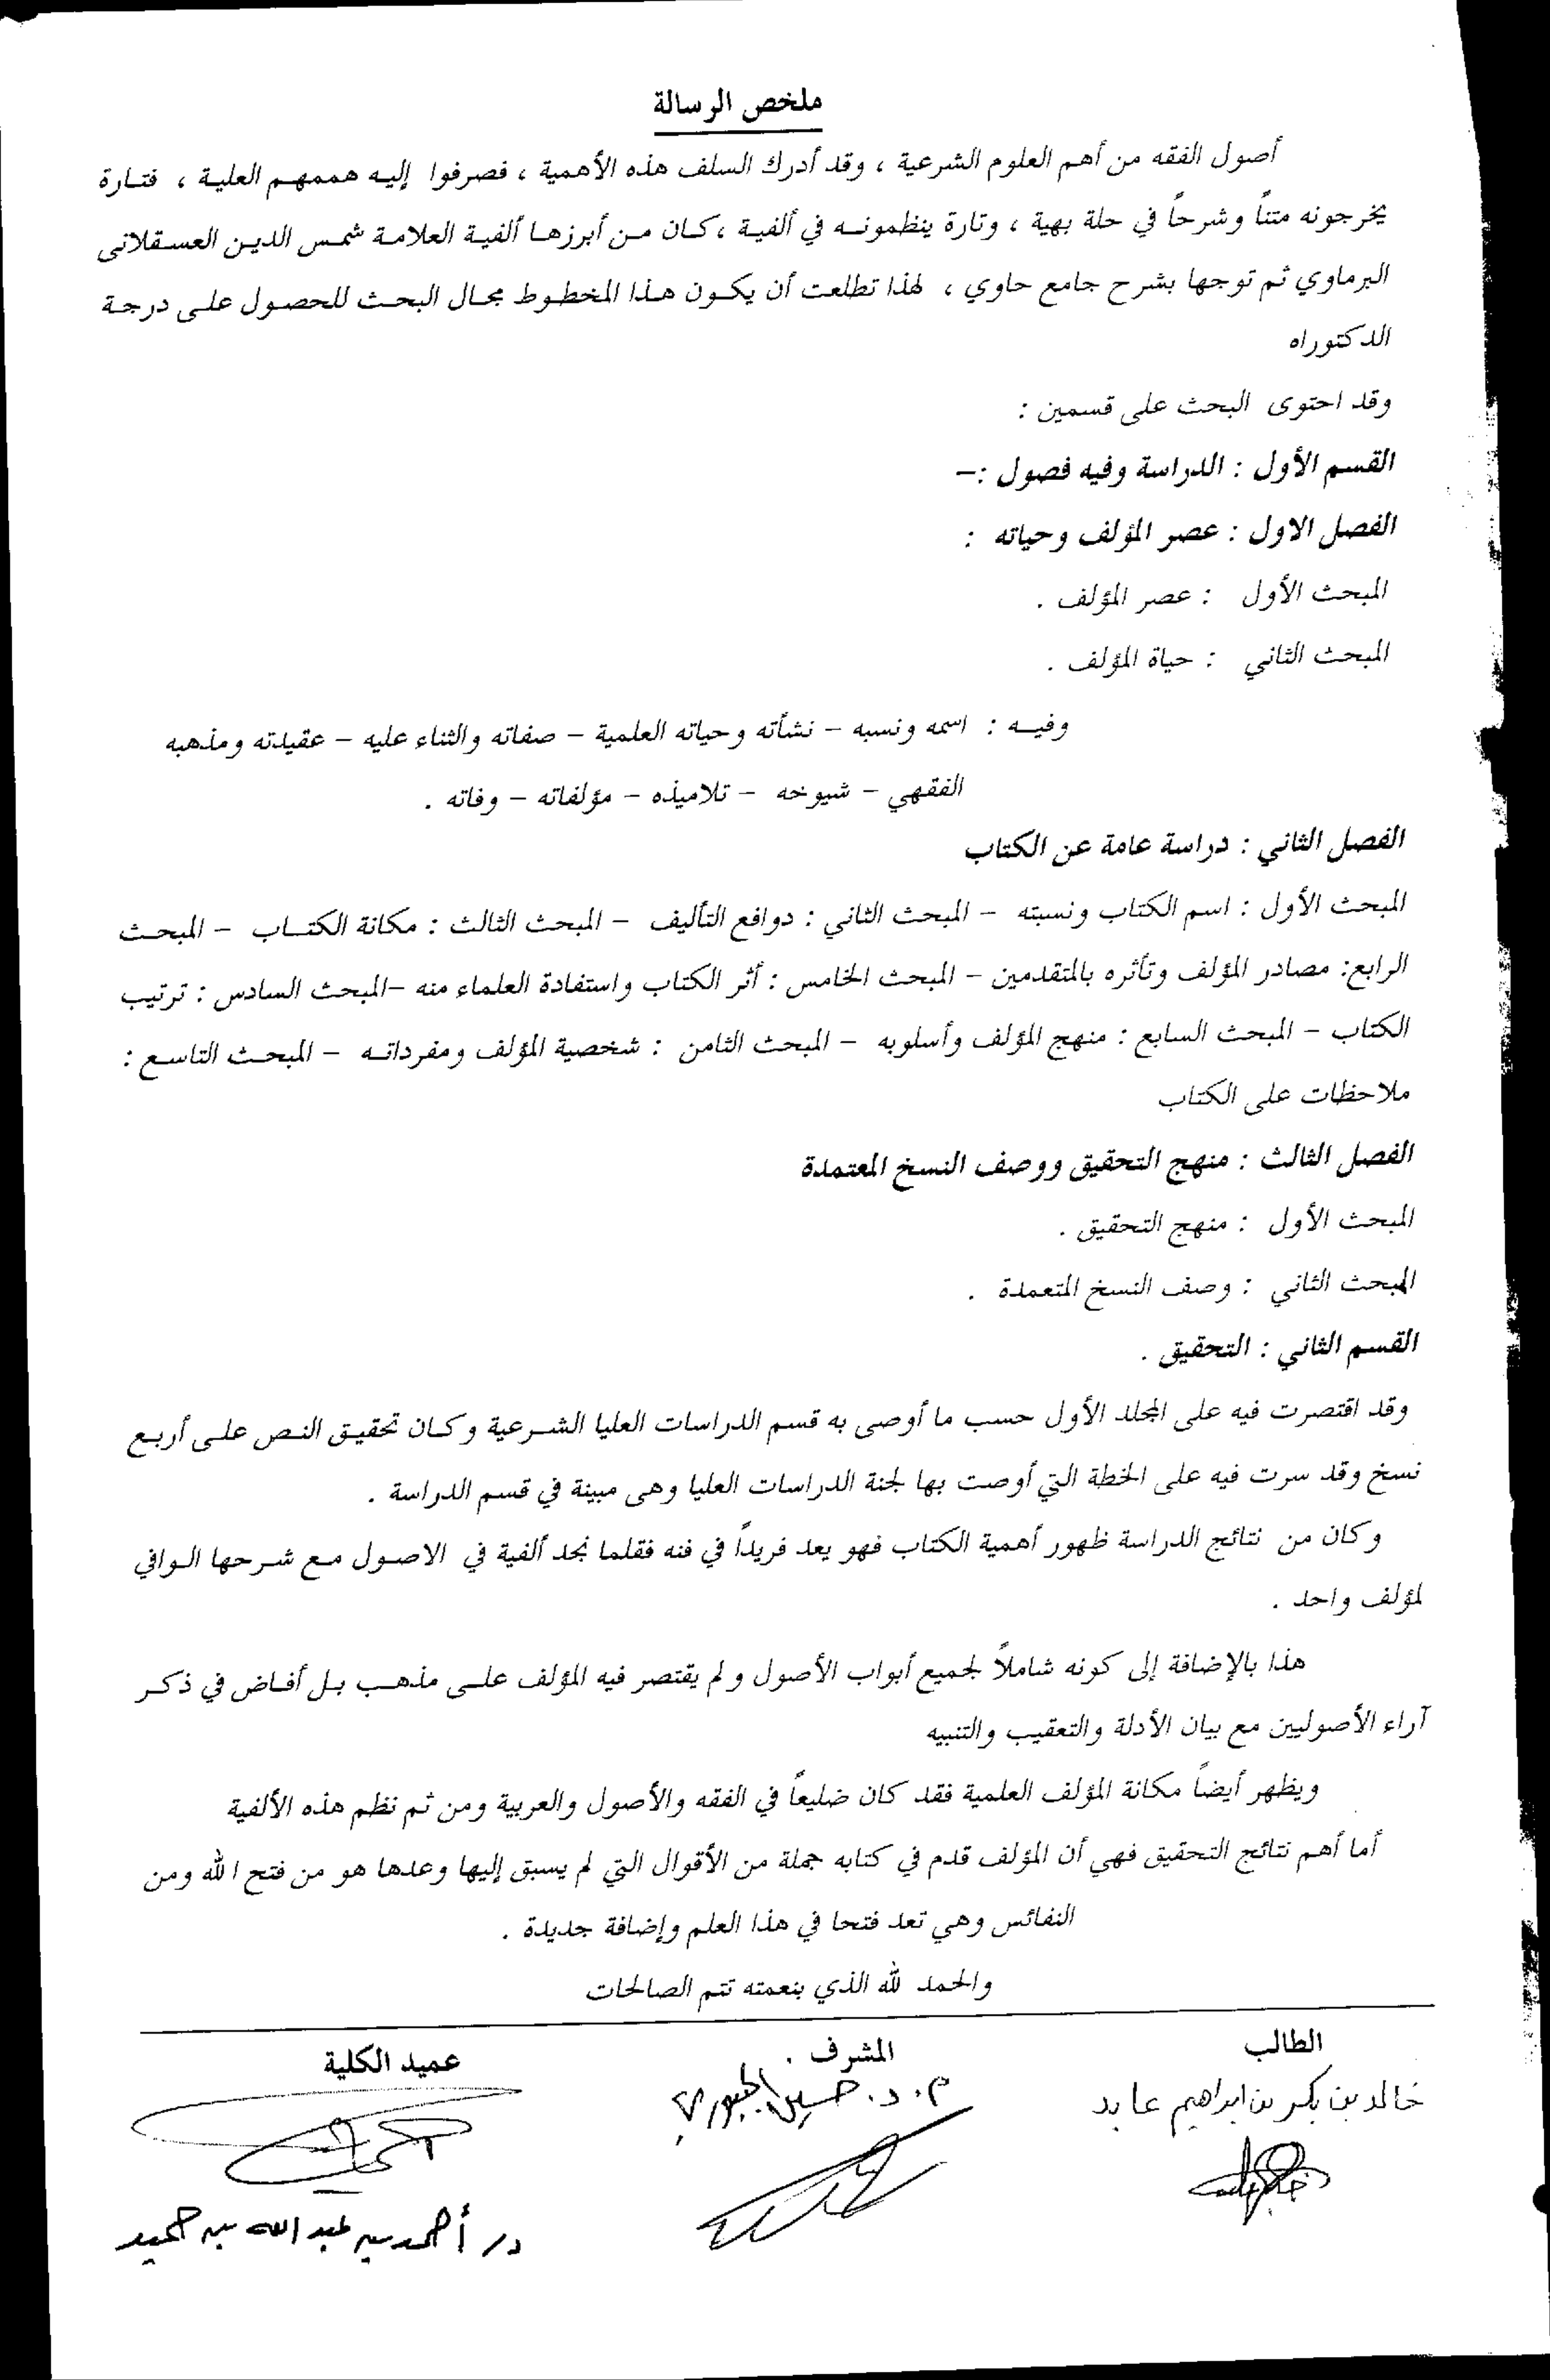 ملخص الرسالة
أصول الفقه من أهم العلوم الشرعية ، وقد أدرك السلف هذه الأهمية ، فصرفوا إليه هممهم العلية ، فتارة
يخرجونه متناً وشرحاً في حلة بهية ، وتارة ينظمونه في ألفية ، كان من أبرزها ألفية العلامة شمس الدين العسقلانى
البرماوي ثم توجها بشرح جامع حاوي ، لهذا تطلعت أن يكون هذا المخطوط مجال البحث للحصول على درجة
الدكتوراه
وقد احتوى البحث على قسمين :
القسم الأول : الدراسة وفيه فصول :–
الفصل الاول : عصر المؤلف وحياته :
المبحث الأول : عصر المؤلف .
المبحث الثاني : حياة المؤلف .
وفيه : اسمه ونسبه – نشأته وحياته العلمية – صفاته والثناء عليه – عقيدته ومذهبه
الفقهي – شيوخه – تلاميذه – مؤلفاته – وفاته .
الفصل الثاني : دراسة عامة عن الكتاب
المبحث الأول : اسم الكتاب ونسبته – المبحث الثاني : دوافع التأليف – المبحث الثالث : مكانة الكتاب – المبحث
الرابع: مصادر المؤلف وتأثره بالمتقدمين – المبحث الخامس : أثر الكتاب واستفادة العلماء منه –المبحث السادس : ترتيب
الكتاب – المبحث السابع : منهج المؤلف وأسلوبه – المبحث الثامن : شخصية المؤلف ومفرداته – المبحث التاسع :
ملاحظات على الكتاب
الفصل الثالث : منهج التحقيق ووصف النسخ المعتمدة
المبحث الأول : منهج التحقيق .
المبحث الثاني : وصف النسخ المتعمدة .
القسم الثاني : التحقيق .
وقد اقتصرت فيه على المجلد الأول حسب ما أوصى به قسم الدراسات العليا الشرعية وكان تحقيق النص على أربع
نسخ وقد سرت فيه على الخطة التي أوصت بها لجنة الدراسات العليا وهى مبينة في قسم الدراسة .
وكان من نتائج الدراسة ظهور أهمية الكتاب فهو يعد فريداً في فنه فقلما نجد ألفية في الاصول مع شرحها الوافي
لمؤلف واحد .
هذا بالإضافة إلى كونه شاملاً لجميع أبواب الأصول ولم يقتصر فيه المؤلف على مذهب بل أفاض في ذكر
آراء الأصوليين مع بيان الأدلة والتعقيب والتنبيه
ويظهر أيضاً مكانة المؤلف العلمية فقد كان ضليعاً في الفقه والأصول والعربية ومن ثم نظم هذه الألفية
أما أهم نتائج التحقيق فهي أن المؤلف قدم في كتابه جملة من الأقوال التي لم يسبق إليها وعدها هو من فتح الله ومن
النفائس وهي تعد فتحا في هذا العلم وإضافة جديدة .
والحمد لله الذي بنعمته تتم الصالحات
الطالب
المشرف .
عميد الكلية
خالد بن بكر بن ابراهيم عابد
م . د . حسين الجبوري
د/ أحمد بن عبد الله بن حميد